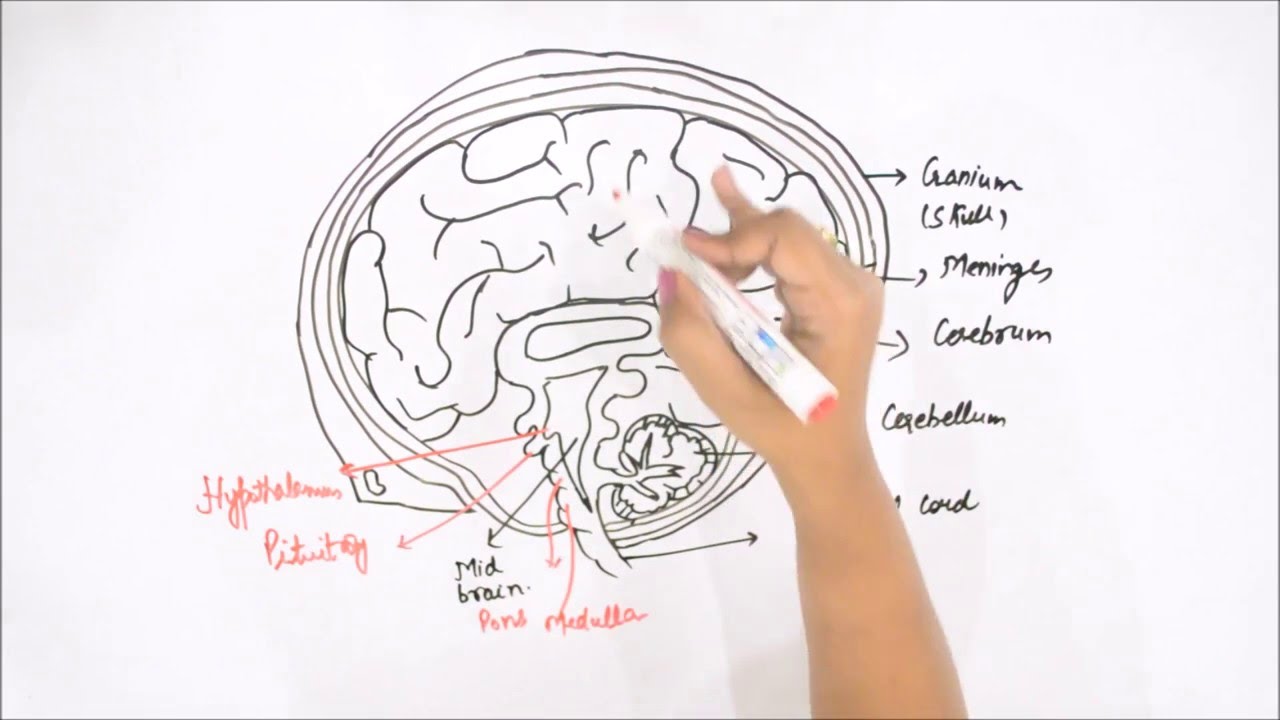 Cranium
(Skull)
Meninges
Cerebrum
Cerebellum
cord
Hypothalamus
Pituitary
Mid
brain.
Pons Medulla